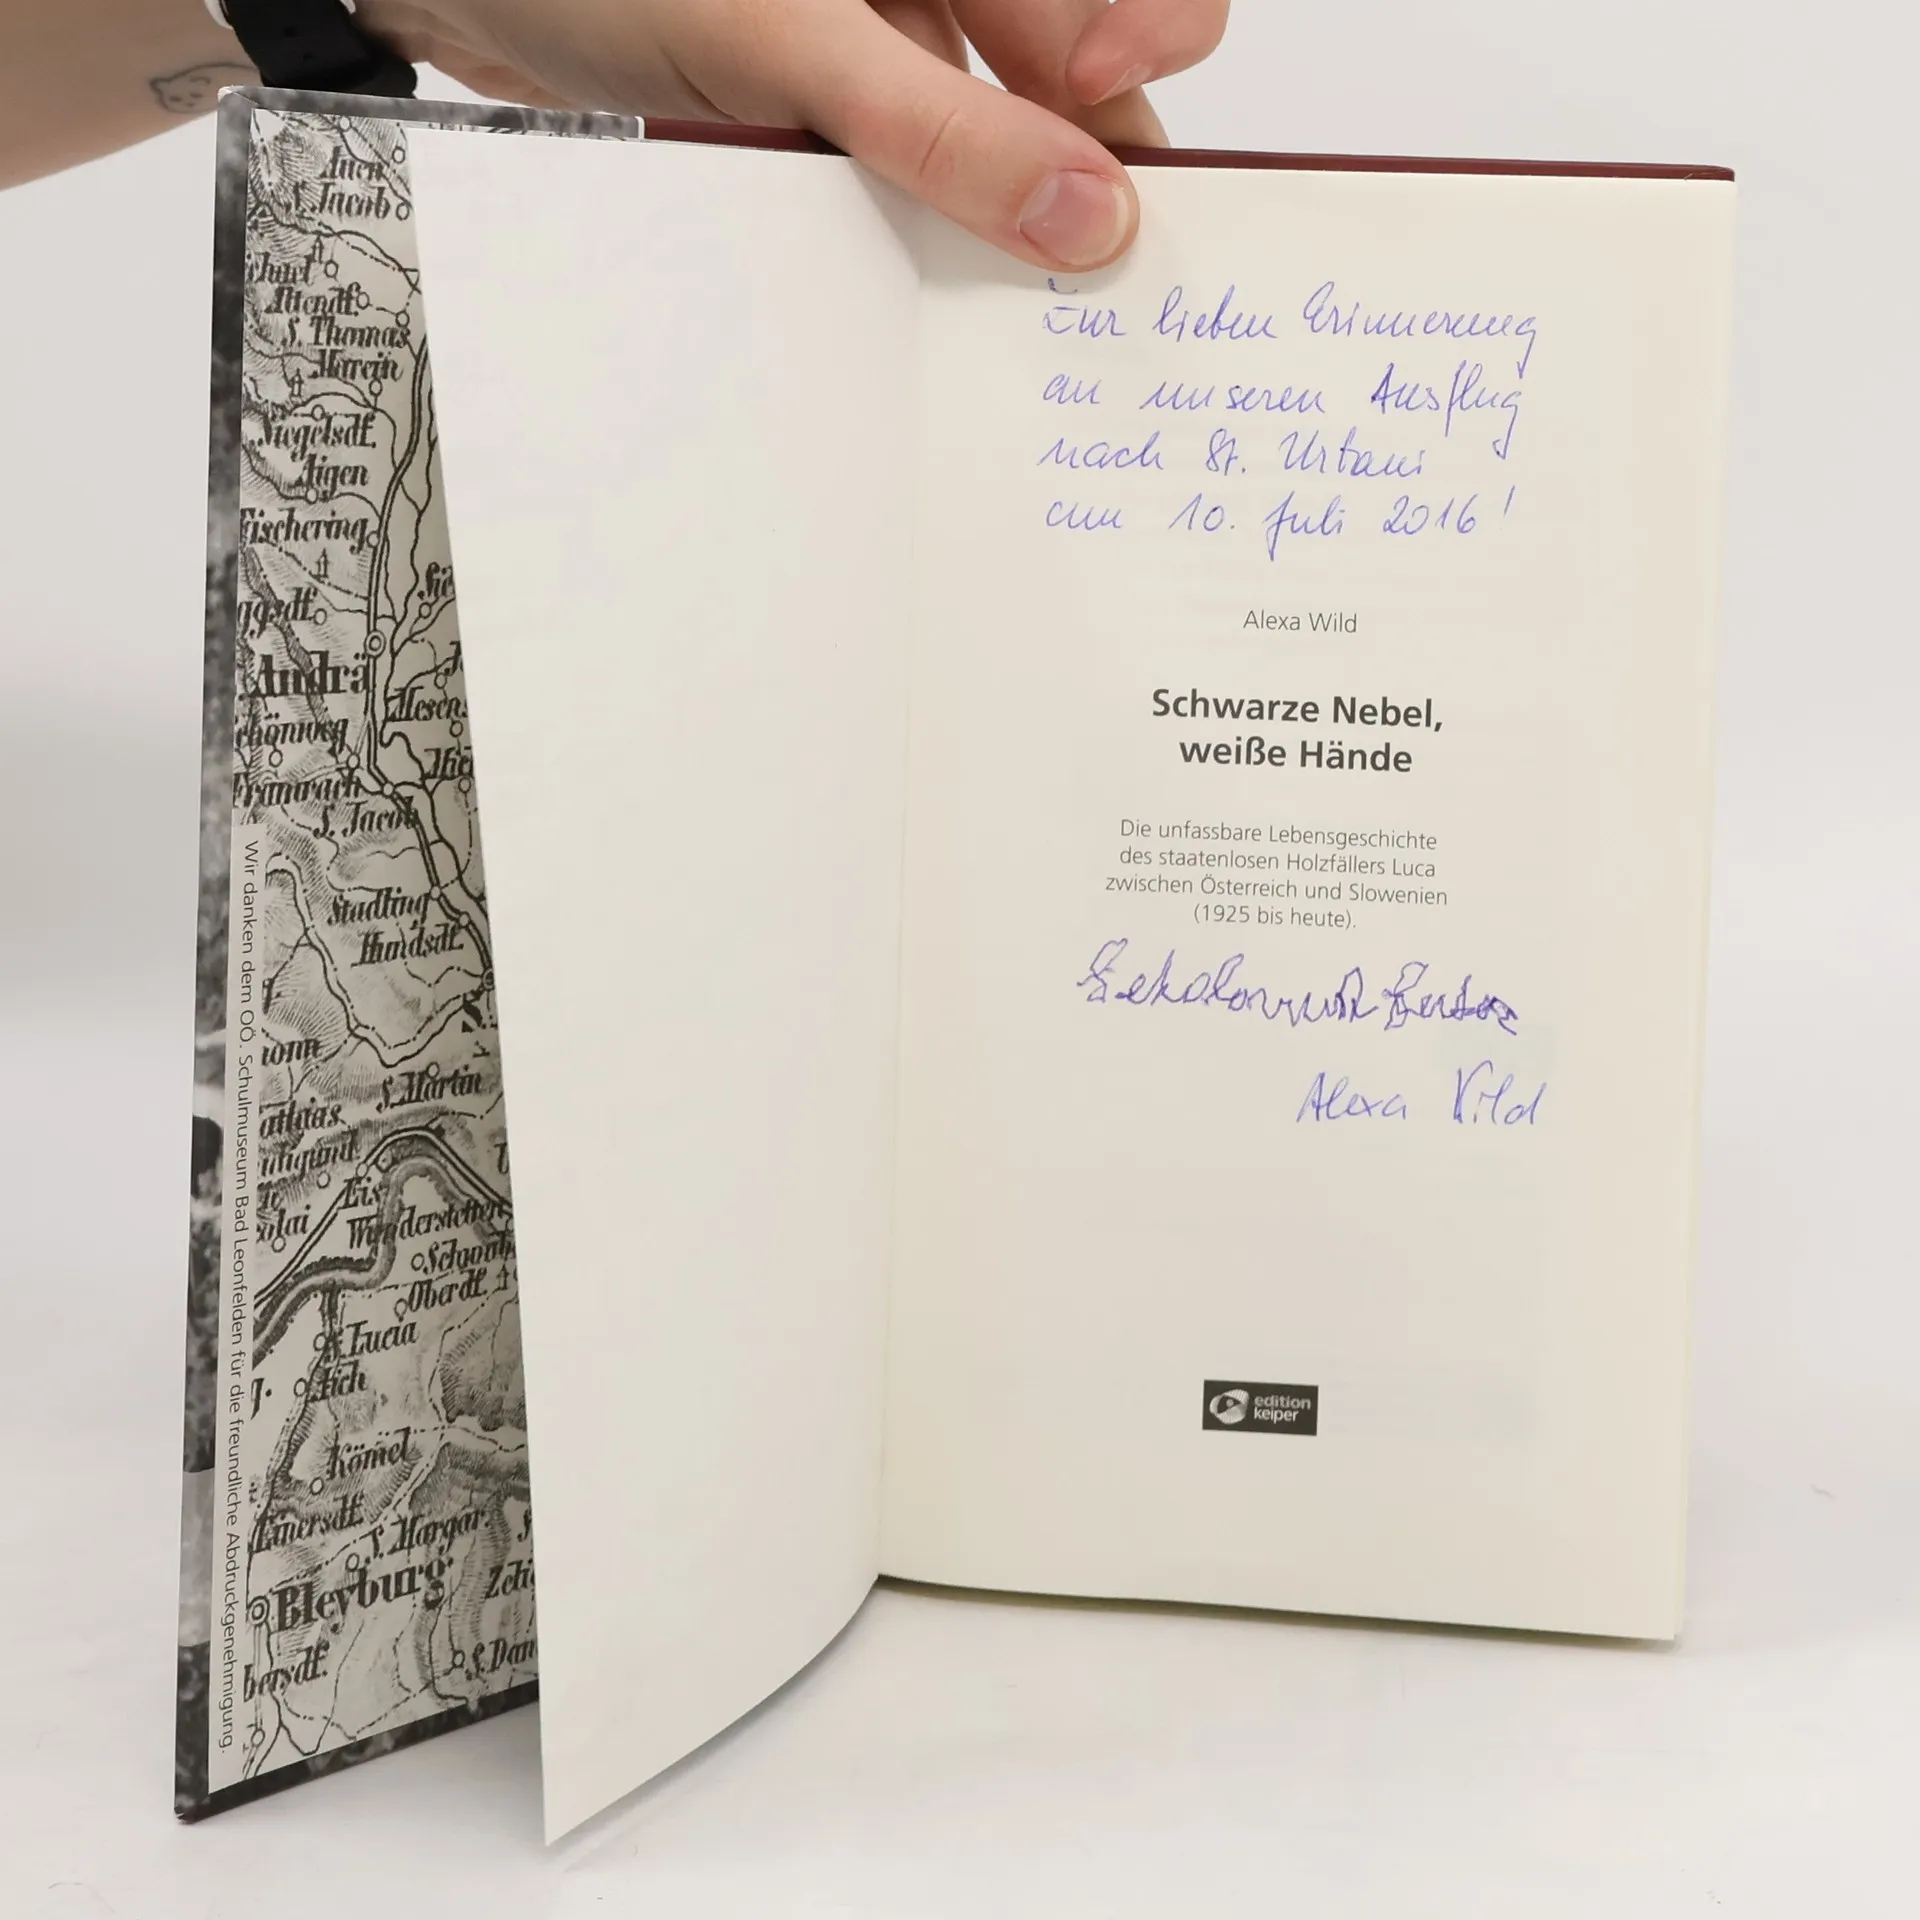 Auen
S. Jacob
Attendf.
S. Thomas
Marein
Siegelsdf.
Aigen
Fischering
Andrä
Schönweg
Framrach
S. Jacob
Stadling
Hundsdf.
S. Martin
Eis
Wunderstetten
Oberdf.
S. Lucia
Aich
Kömel
S. Margar.
Bleyburg
Wir danken dem OÖ. Schulmuseum Bad Leonfelden für die freundliche Abdruckgenehmigung.
Zur lieben Erinnerung
an unseren Ausflug
nach St. Urbani
am 10. Juli 2016!
Alexa Wild
Schwarze Nebel,
weiße Hände
Die unfassbare Lebensgeschichte
des staatenlosen Holzfällers Luca
zwischen Österreich und Slowenien
(1925 bis heute).
Alexa Wild
edition
keiper